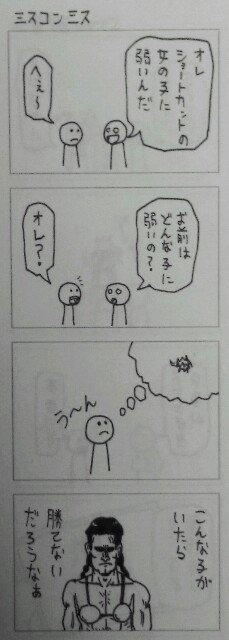 ミスコンミス
オレ
ショートカットの
女の子に
弱いんだ
へぇ〜
お前は
どんな子に
弱いの?
オレ?
う〜ん
こんな子が
いたら
勝てない
だろうなぁ